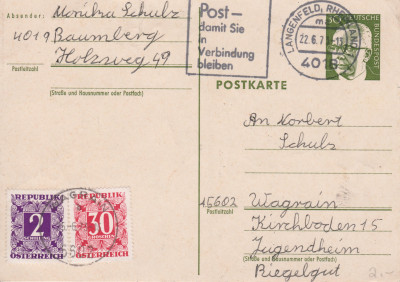 Absender: Monika Schulz
4019 Baumberg
Postleitzahl
Holzweg 49
(Straße und Hausnummer oder Postfach)
Post-
damit Sie
in
Verbindung
bleiben
LANGENFELD, RHEINLAND
22.6.7
4018
30 DEUTSCHE BUNDESPOST
POSTKARTE
An Norbert
Schulz
15602 Wagrain
Postleitzahl
Kirchboden 15
Jugendheim
(Straße und Hausnummer oder Postfach)
Riegelgut
REPUBLIK
2
ÖSTERREICH
REPUBLIK
30
GROSCHEN
ÖSTERREICH
2.-